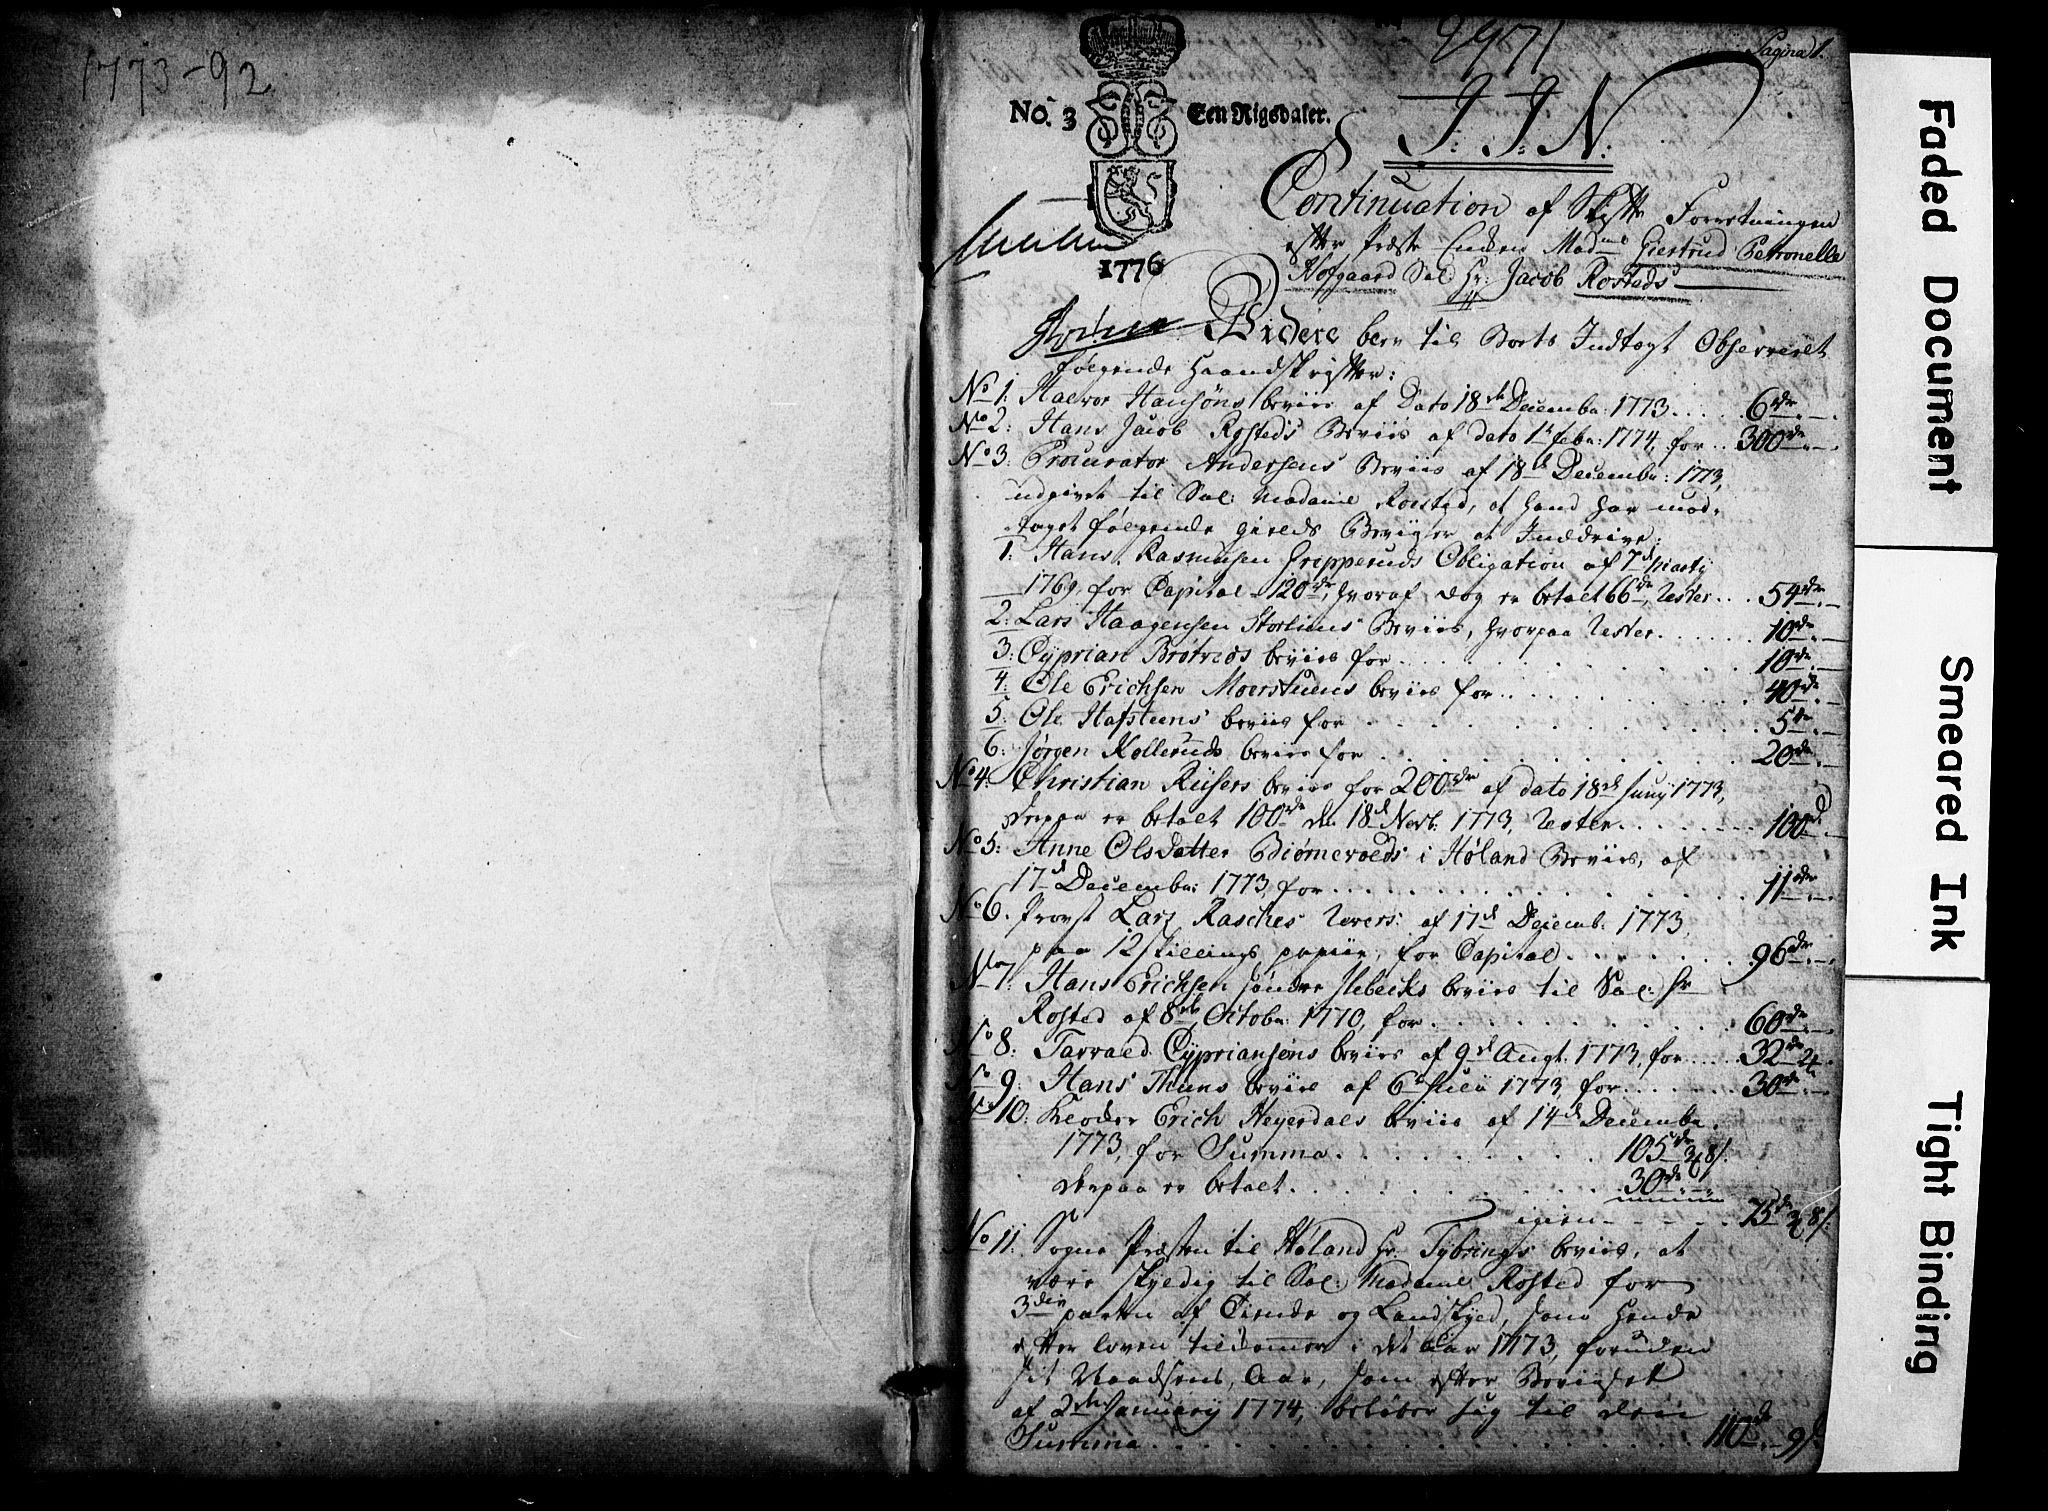 1773-92
9971
Pagina 1.
No. 3 Een Rigsdaler.
J: J: N:
1776
Continuation af Skifte Forretningen
efter Præste Enken Mad.me Giertrud Petronelle
Hofgaard Sal. Hr: Jacob Rosteds
Videre blev til Boets Indtægt Observeret
følgende Haandskrifter:
No 1: Halvor Hansøns beviis af Dato 18de Decembr: 1773 .... 6 rdr
No 2: Hans Jacob Rosteds Beviis af dato 1te Febr: 1774, for .. 300 rdr
No 3: Procurator Andersens Beviis af 18de Decembr: 1773,
udgivet til Sal: Madame Rosted, at hand har mod-
taget følgende Gields Beviiser at Inddrive:
1: Hans Rasmusen Grepperuds Obligation af 7de Marty
1769, for Capital 120 rdr, hvoraf dog er betalt 66 rdr, Rester ... 54 rdr
2: Lars Haagensen Beviis, hvorpaa Rester ...... 10 rdr
3: Cyprian Brøtveds beviis for ...... 10 rdr
4: Ole Erichsen Moerstuens beviis for ...... 40 rdr
5: Ole Hafsteens beviis for ...... 5 rdr
6: Jørgen Kolleruds beviis for ...... 20 rdr
No 4: Christian Riisers beviis for 200 rdr af dato 18de Juny 1773,
derpaa er betalt 100 rdr den 18de Novb: 1773, Rester ...... 100 rd
No 5: Anne Olsdatter Biørneroeds i Høland Beviis, af
17de Decembr: 1773, for ...... 11 rdr
No 6. Provst Lars Rasches Revers: af 17de Decemb: 1773,
paa 12 skillings papiir, for Capital ...... 96 rdr
No 7: Hans Erichsen Søndre beviis til Sal: Hr
Rosted af 8de Octobr: 1770, for ...... 60 rdr
No 8: Tarraed Cypriansøns beviis af 9de Augt: 1773, for .... 32 rdr 2
No 9: Hans Thuns beviis af 6te Julii 1773, for ...... 30 rdr
No 10: Erich Heyerdals beviis af 14de Decembr.
1773, for Summa ...... 105 rdr 3 8s.
derpaa er betalt ...... 30 rdr
igien ..... 75 rd 3 8s.
No 11: Sogne Præsten til Høland Hr Tybrings beviis, at
være skyldig til Sal: Madame Rosted for
3die parten af Tiende og Landskyld, som hende
efter loven tilkommer i det aar 1773, foruden
sit Naadsens Aar, som efter Beviiset
af 2den January 1774, beløber sig til den
Summa ...... 110 rd 9s
Faded Document
Smeared Ink
Tight Binding